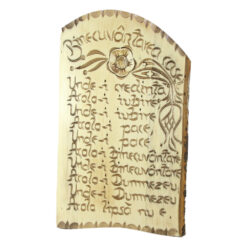 Binecuvântarea casei
Unde-i credință
Acolo-i iubire
Unde-i iubire
Acolo-i pace
Unde-i pace
Acolo-i Binecuvântare
Unde-i Binecuvântare
Acolo-i Dumnezeu
Unde-i Dumnezeu
Acolo lipsă nu e.